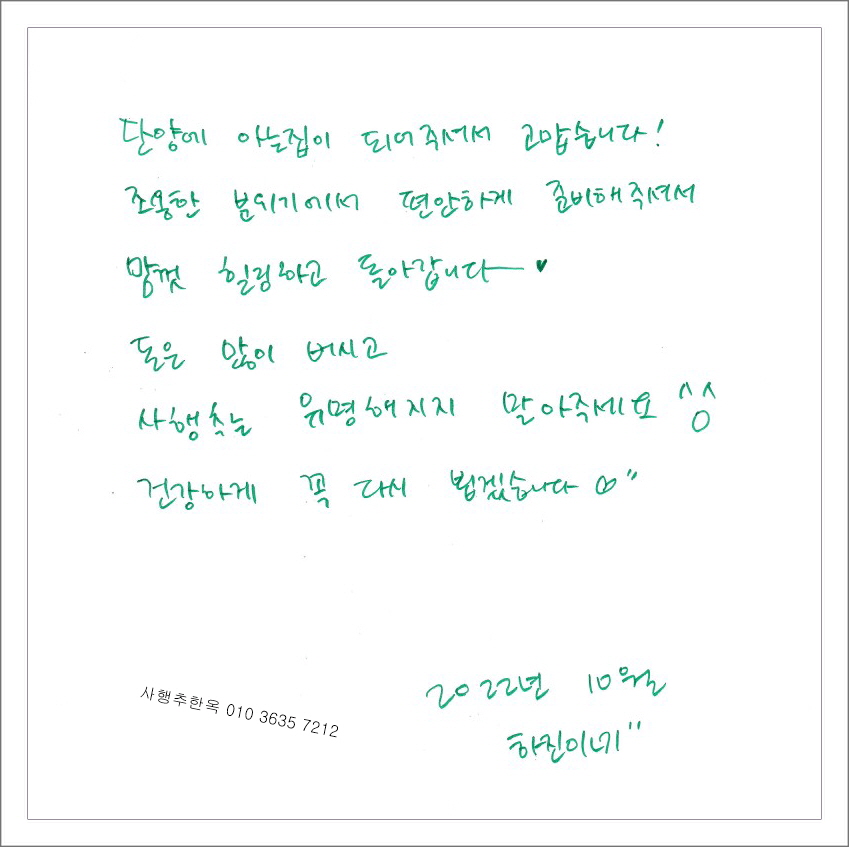 단양에 아는집이 되어주셔서 고맙습니다!
조용한 분위기에서 편안하게 준비해주셔서
맘껏 힐링하고 돌아갑니다 ♥
돈은 많이 버시고
사행추는 유명해지지 말아주세요 ^^
건강하게 꼭 다시 뵙겠습니다 ♡"
2022년 10월
하진이네"
사행추한옥 010 3635 7212